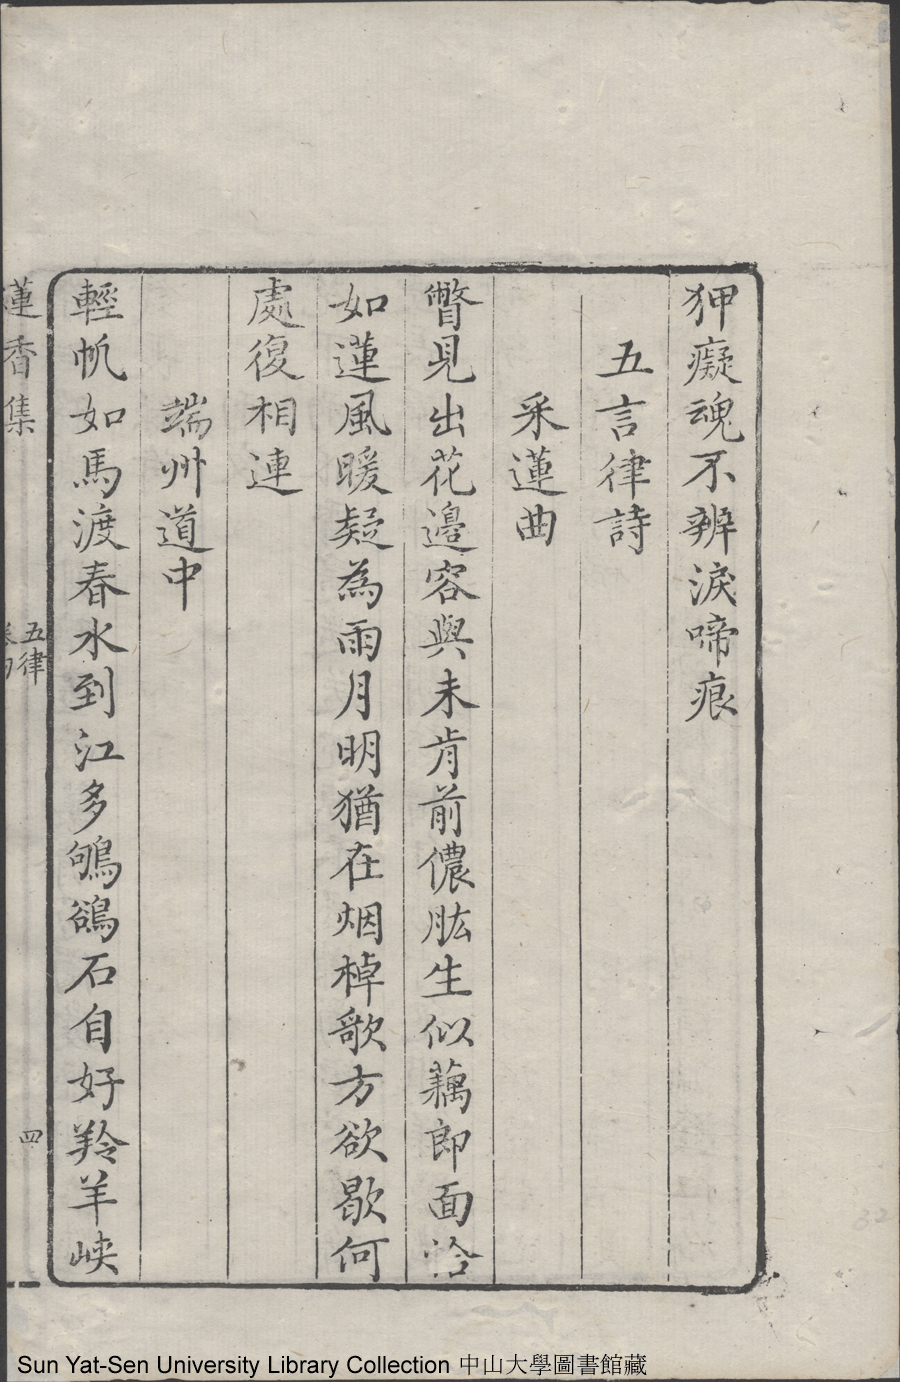 狎癡魂不辨淚啼痕
五言律詩
采蓮曲
瞥見出花邊容與未肯前儂肱生似藕郎面恰
如蓮風暖疑為雨月明猶在烟棹歌方欲歇何
處復相連
端州道中
輕帆如馬渡春水到江多鴝鵒石自好羚羊峽
蓮香集
五律
四
Sun Yat-Sen University Library Collection 中山大學圖書館藏